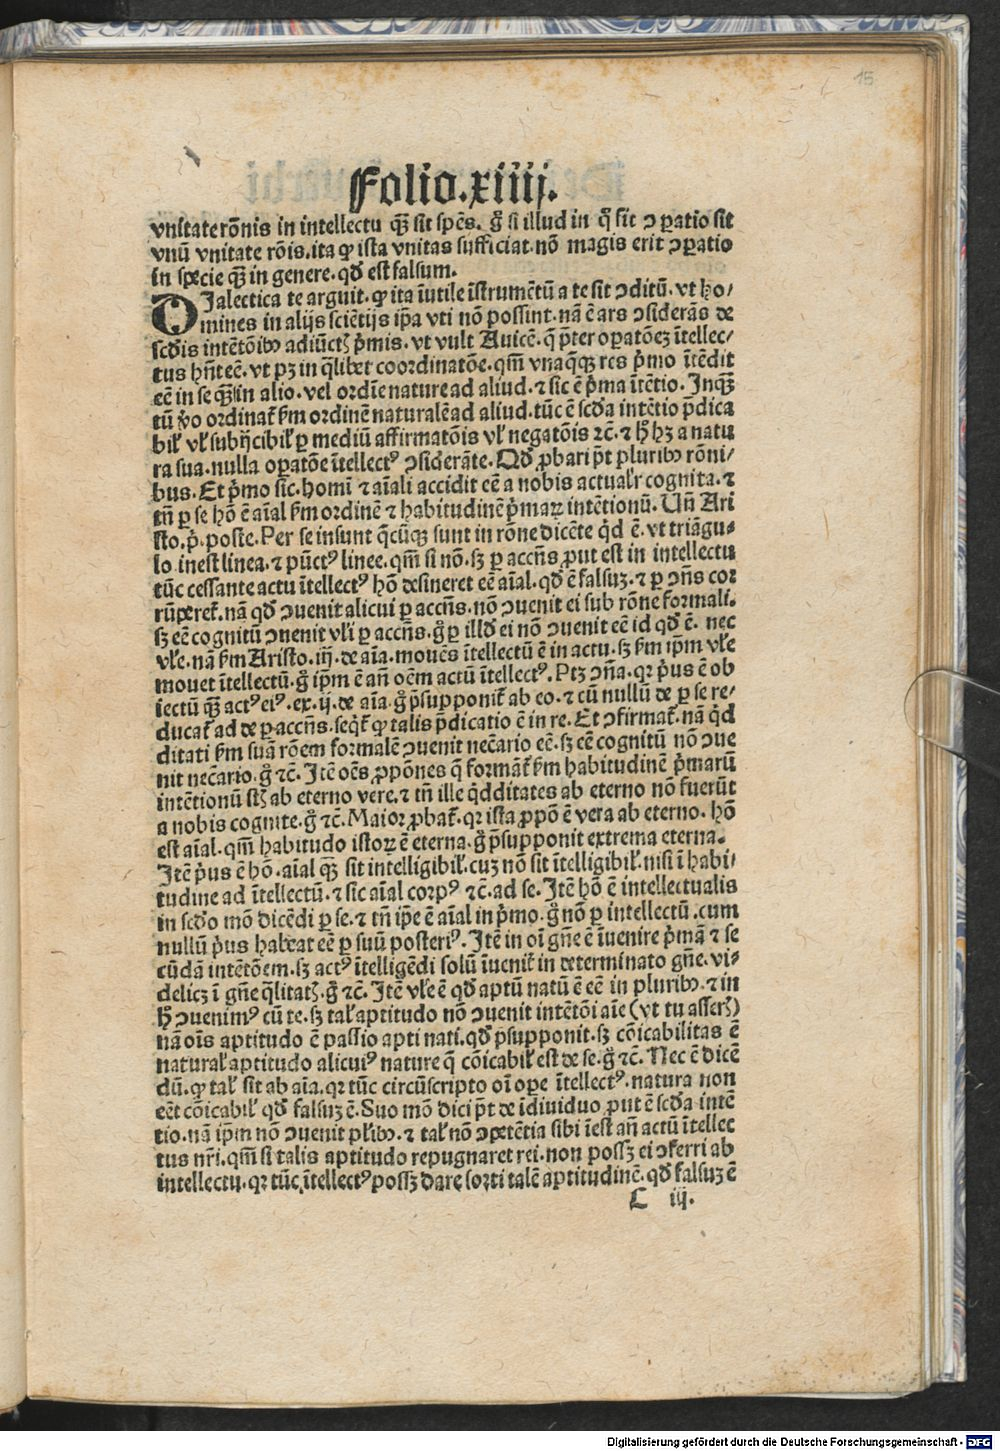 15
Folio.xiiij.
vnitate rōnis in intellectu q̄ꝫ sit spēs. gͦ si illud in qͦ sit ɔꝑatio sit
vnū vnitate rōis.ita ꝙ ista vnitas sufficiat.nō magis erit ɔꝑatio
in specie q̄ꝫ in genere.qd̓ est falsum.
DJalectica te arguit.ꝙ ita īutile īstrumētū a te sit ɔditū.vt ho/
mines in alijs sciētijs ip̄a vti nō possint.nā ē ars ɔsiderās de
scd̓is intētōibꝰ adiūctꝭ pͥmis.vt vult Auicē.q̄ p̄ter oꝑatōeꝫ ītellec/
tus hn̄t eē.vt pꝫ in qͣlibet coordinatōe.qm̄ vnaq̄qꝫ res pͥmo ītēdit
eē in se q̄ꝫ in alio.vel ordīe nature ad aliud.⁊ sic ē pͥma ītētio.Jnq̄ꝫ
tū v̓o ordinat̉ ẜm ordinē naturalē ad aliud.tūc ē scd̓a intētio p̄dica
bil̓ vl̓ subijcibil̓ ꝑ mediū affirmatōis vl̓ negatōis ⁊c̄.⁊ hͦ hꝫ a natu
ra sua.nulla oꝑatōe ītellectꝰ ɔsiderāte.Qd̓ ꝓbari pōt pluribꝰ rōni/
bus.Et pͥmo sic.homī ⁊ aīali accidit eē a nobis actual̓r cognita.⁊
tn̄ ꝑ se hō ē aīal ẜm ordinē ⁊ habitudinē pͥmaꝝ intētionū.Un̄ Ari
sto.pͥ.poste.Per se insunt q̄cūqꝫ sunt in rōne dicēte qͥd ē.vt triāgu⸗
lo inest linea.⁊ pūctꝰ linee.qm̄ si nō.sꝫ ꝑ accn̄s ꝓut est in intellectu
tūc cessante actu ītellectꝰ hō desineret eē aīal.qd̓ ē falsuꝫ.⁊ ꝑ ɔn̄s cor
rūperet̉.nā qd̓ ɔuenit alicui ꝑ accn̄s.nō ɔuenit ei sub rōne formali.
sꝫ eē cognitū ɔuenit vl̓i ꝑ accn̄s.gͦ ꝑ illd̓ ei nō ɔuenit eē id qd̓ ē. nec
vl̓e.nā ẜm Aristo.iij.de aīa.mouēs ītellectū ē in actu.sꝫ ẜm ip̄m vl̓e
mouet ītellectū.gͦ ip̄m ē an̄ oēm actū ītellectꝰ.Ptꝫ ɔn̄a.qꝛ pͥus ē ob
iectū q̄ꝫ actꝰ eiꝰ.ex.ij.de aīa.gͦ p̄supponit̉ ab eo.⁊ cū nullū de ꝑ se re/
ducat̉ ad de ꝑ accn̄s.seqͥt̉ ꝙ talis p̄dicatio ē in re. Et ɔfirmat̉.nā qͥd
ditati ẜm suā rōem formalē ɔuenit nec̄ario eē.sꝫ eē cognitū nō ɔue
nit nec̄ario.gͦ ⁊c̄.Jtē oēs ꝓpōnes q̄ formāt̉ ẜm habitudinē pͥmarū
intētionū sūt ab eterno vere.⁊ tn̄ ille qͥdditates ab eterno nō fuerūt
a nobis cognite.gͦ ⁊c̄.Maior ꝓbat̉.qꝛ ista ꝓpō ē vera ab eterno. hō
est aīal.qm̄ habitudo istoꝝ ē eterna.gͦ p̄supponit extrema eterna.
Jtē pͥus ē hō.aīal q̄ꝫ sit intelligibil̓.cuꝫ nō sit ītelligibil̓.nisi ī habi/
tudine ad ītellectū.⁊ sic aīal corpꝰ ⁊c̄.ad se.Jtē hō ē intellectualis
in scd̓o mō dicēdi ꝑ se.⁊ tn̄ ip̄e ē aīal in pͥmo.gͦ nō ꝑ intellectū.cum
nullū pͥus habeat eē ꝑ suū posteriꝰ.Jtē in oī gn̄e ē īuenire pͥmā ⁊ se
cūdā intētōem.sꝫ actꝰ ītelligēdi solū īuenit̉ in determinato gn̄e.vi⸗
delicꝫ ī gn̄e qͣlitatꝭ.gͦ ⁊c̄.Jtē vl̓e ē qd̓ aptū natū ē eē in pluribꝰ.⁊ in
hͦ ɔuenimꝰ cū te.sꝫ tal̓ aptitudo nō ɔuenit intētōi aīe (vt tu asserꝭ)
nā oīs aptitudo ē passio apti nati.qd̓ p̄supponit.sꝫ cōicabilitas ē
natural̓ aptitudo alicuiꝰ nature q̄ cōicabil̓ est de se.gͦ ⁊c̄.Nec ē dicē
dū.ꝙ tal̓ sit ab aīa.qꝛ tūc circūscripto oī oꝑe ītellectꝰ.natura non
eēt cōicabil̓ qd̓ falsuꝫ ē.Suo mō dici pōt de īdiuiduo ꝓut ē scd̓a intē
tio.nā ip̄m nō ɔuenit pl̓ibꝰ.⁊ tal̓ nō ɔpetētia sibi īest an̄ actū ītellec
tus nr̄i.qm̄ si talis aptitudo repugnaret rei.non possꝫ ei ɔferri ab
intellectu.qꝛ tūc ītellectꝰ possꝫ dare sorti talē aptitudinē.qd̓ falsuꝫ ē
C iij.
Digitalisierung gefördert durch die Deutsche Forschungsgemeinschaft - DFG